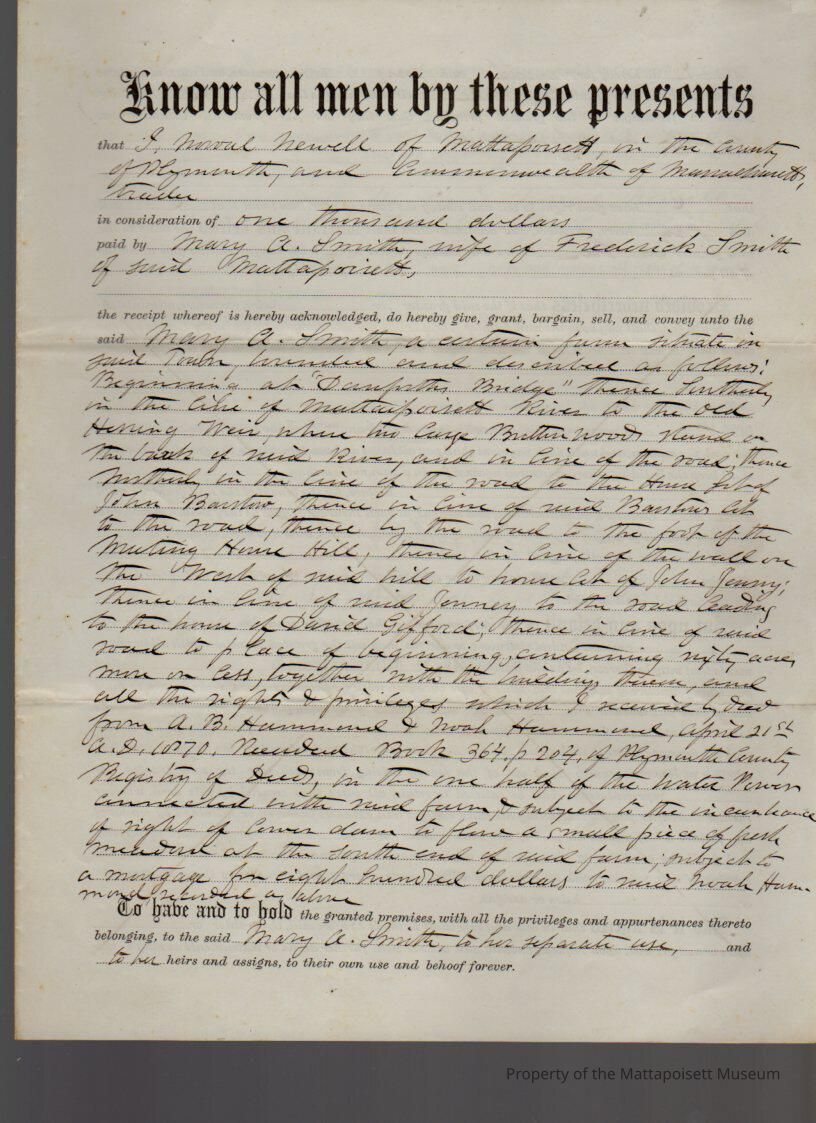 Know all men by these presents
that I, Noval Newell of Mattapoisett, in the County
of Plymouth, and Commonwealth of Massachusetts,
trader
in consideration of one thousand dollars
paid by Mary A. Smith, wife of Frederick Smith
of said Mattapoisett,
the receipt whereof is hereby acknowledged, do hereby give, grant, bargain, sell, and convey unto the
said Mary A. Smith, a certain farm situate in
said Town, bounded and described as follows:
Beginning at "Danforths Bridge" thence Southerly
in the line of Mattapoisett River to the old
Herring Weir, where two large Buttonwoods stand on
the bank of said River, and in line of the road; thence
Northerly in the line of the road to the House Lot of
John Barstow, thence in line of said Barstows lot
to the road, thence by the road to the foot of the
Meeting House Hill, thence in line of the wall on
the West of said hill to house lot of John Jenney;
thence in line of said Jenney to the road leading
to the house of David Gifford; thence in line of said
road to place of beginning, containing sixty acres
more or less, together with the buildings thereon, and
all the rights & privileges which I received by deed
from A. B. Hammond & Noah Hammond, April 21st
A.D. 1870. Recorded Book 364, p 204, of Plymouth County
Registry of Deeds, in the one half of the Water Power
connected with said farm, & subject to the incumbrance
of right of lower dam to flow a small piece of fresh
meadow at the south end of said farm; subject to
a mortgage for eight hundred dollars to said Noah Ham-
mond recorded as above
To have and to hold the granted premises, with all the privileges and appurtenances thereto
belonging, to the said Mary A. Smith, to her separate use, and
to her heirs and assigns, to their own use and behoof forever.
Property of the Mattapoisett Museum